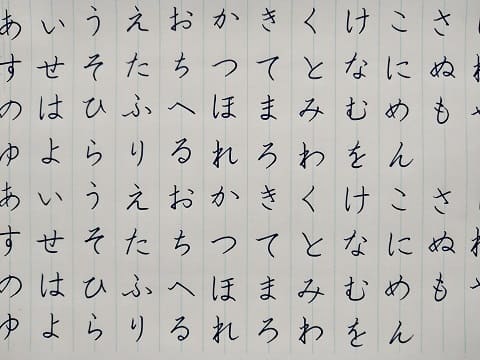 あいうえおかきくけこさ
すせそたちつてとなにぬ
のはひふへほまみむめも
ゆよらりるれろわをん
あいうえおかきくけこさ
すせそたちつてとなにぬ
のはひふへほまみむめも
ゆよらりるれろわをん